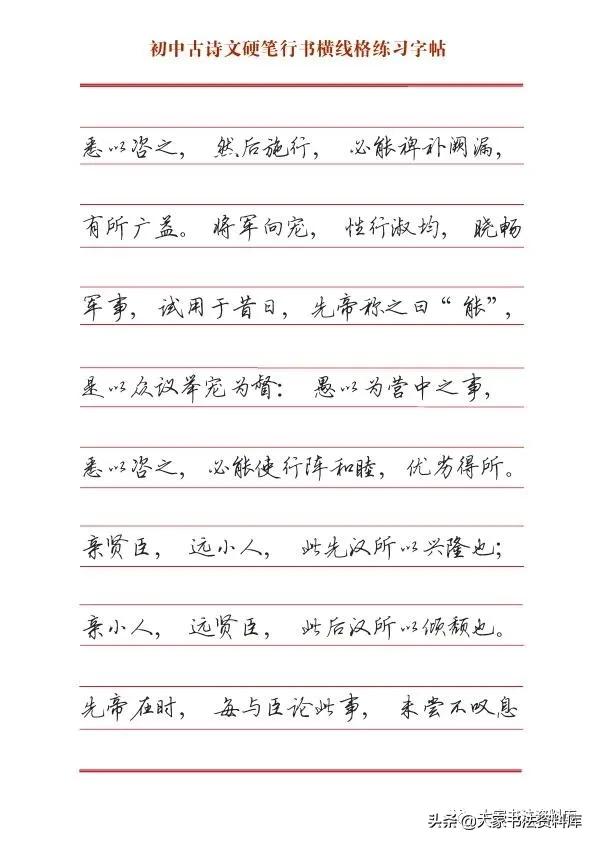 初中古诗文硬笔行书横线格练习字帖
悉以咨之， 然后施行， 必能裨补阙漏，
有所广益。 将军向宠， 性行淑均， 晓畅
军事， 试用于昔日， 先帝称之曰“能”，
是以众议举宠为督： 愚以为营中之事，
悉以咨之， 必能使行阵和睦， 优劣得所。
亲贤臣， 远小人， 此先汉所以兴隆也；
亲小人， 远贤臣， 此后汉所以倾颓也。
先帝在时， 每与臣论此事， 未尝不叹息
大家书法资料库
头条@大家书法资料库